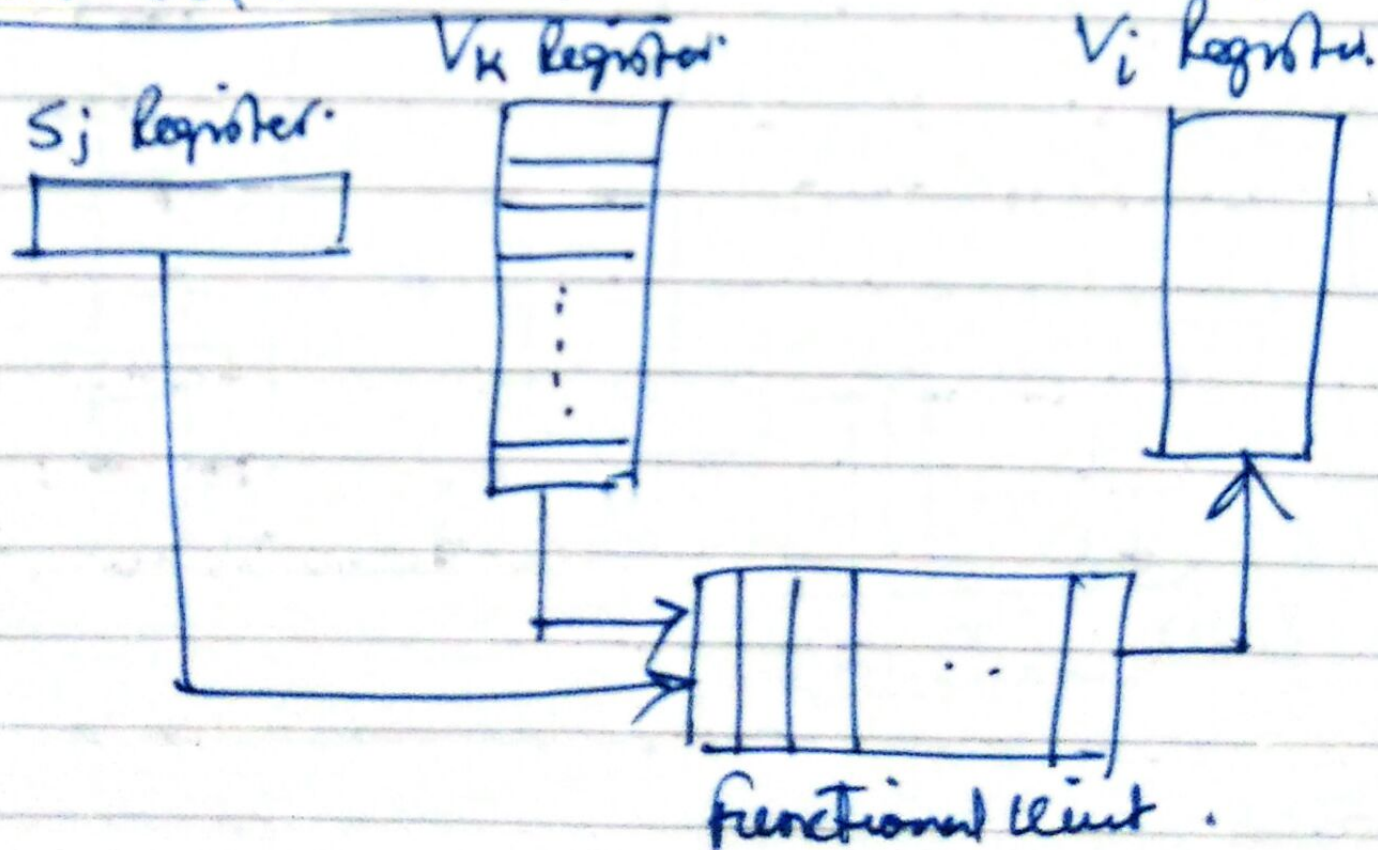 Vk Register.
Vi Register.
Sj Register.
Functional Unit.